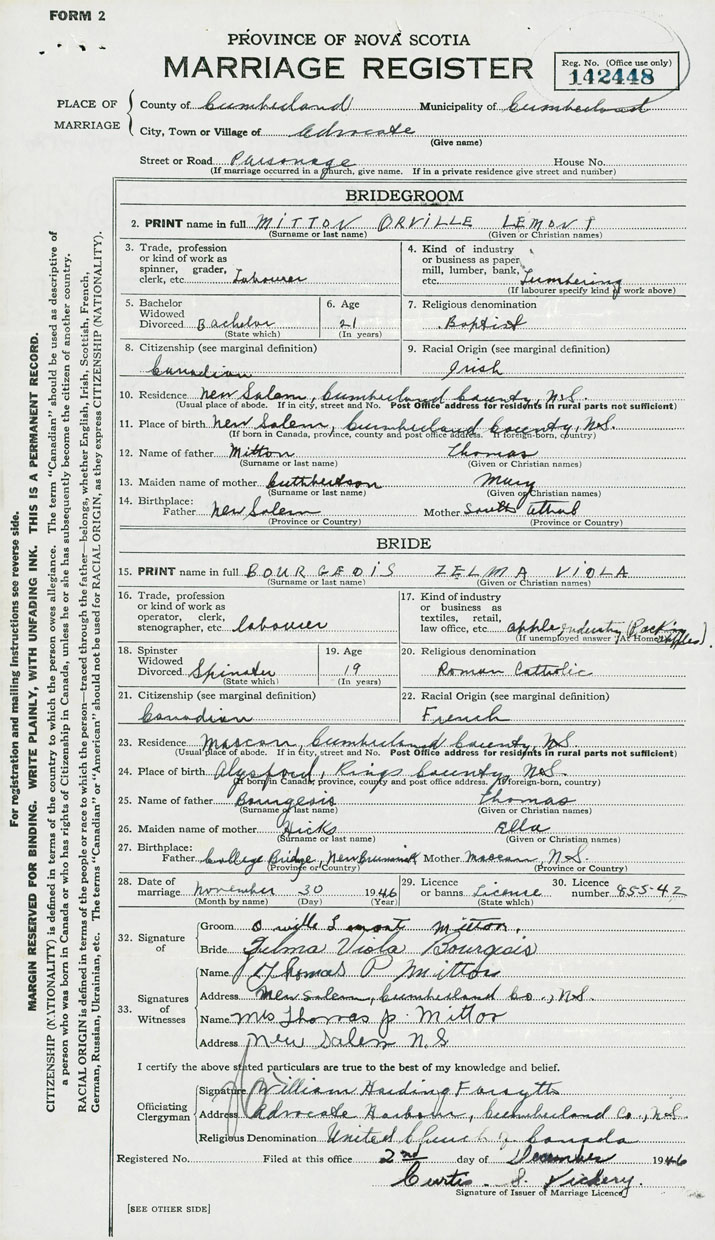 FORM 2
PROVINCE OF NOVA SCOTIA
MARRIAGE REGISTER
Reg. No. (Office use only)
142448
PLACE OF MARRIAGE
County of Cumberland Municipality of Cumberland
City, Town or Village of Advocate
(Give name)
Street or Road Parsonage House No.
(If marriage occurred in a church, give name. If in a private residence give street and number)
BRIDEGROOM
2. PRINT name in full MITTON ORVILLE LEMONT
(Surname or last name) (Given or Christian names)
3. Trade, profession or kind of work as spinner, grader, clerk, etc. Labourer
4. Kind of industry or business as paper mill, lumber, bank, etc. Lumbering
(If labourer specify kind of work above)
5. Bachelor Widowed Divorced Bachelor
(State which)
6. Age 21
(In years)
7. Religious denomination
Baptist
8. Citizenship (see marginal definition)
Canadian
9. Racial Origin (see marginal definition)
Irish
10. Residence New Salem, Cumberland County, N.S.
(Usual place of abode. If in city, street and No. Post Office address for residents in rural parts not sufficient)
11. Place of birth New Salem, Cumberland County, N.S.
(If born in Canada, province, county and post office address. If foreign-born, country)
12. Name of father Mitton Thomas
(Surname or last name) (Given or Christian names)
13. Maiden name of mother Cuthbertson Mary
(Surname or last name) (Given or Christian names)
14. Birthplace:
Father New Salem Mother South
(Province or Country) (Province or Country)
BRIDE
15. PRINT name in full BOURGEOIS ZELMA VIOLA
(Surname or last name) (Given or Christian names)
16. Trade, profession or kind of work as operator, clerk, stenographer, etc. labourer
17. Kind of industry or business as textiles, retail, law office, etc. apple industry (Packing apples)
(If unemployed answer "At Home")
18. Spinster Widowed Divorced Spinster
(State which)
19. Age 19
(In years)
20. Religious denomination
Roman Catholic
21. Citizenship (see marginal definition)
Canadian
22. Racial Origin (see marginal definition)
French
23. Residence Maccan, Cumberland County, N.S.
(Usual place of abode. If in city, street and No. Post Office address for residents in rural parts not sufficient)
24. Place of birth Alysford, Kings County, N.S.
(If born in Canada, province, county and post office address. If foreign-born, country)
25. Name of father Bourgeois Thomas
(Surname or last name) (Given or Christian names)
26. Maiden name of mother Hicks Ella
(Surname or last name) (Given or Christian names)
27. Birthplace:
Father College Bridge, New Brunswick Mother Maccan, N.S.
(Province or Country) (Province or Country)
28. Date of marriage November 30 1946
(Month by name) (Day) (Year)
29. Licence or banns License
(State which)
30. Licence number 855-42
32. Signature of
Groom Orville Lemont Mitton
Bride Zelma Viola Bourgeois
33. Signatures of Witnesses
Name Thomas P Mitton
Address New Salem, Cumberland Co., N.S.
Name Mrs Thomas P. Mitton
Address New Salem N.S
I certify the above stated particulars are true to the best of my knowledge and belief.
Officiating Clergyman
Signature William Harding Forsyth
Address Advocate Harbour, Cumberland Co., N.S.
Religious Denomination United Church of Canada
Registered No. Filed at this office 2nd day of December 1946
Curtis S. Vickery.
Signature of Issuer of Marriage Licence
[SEE OTHER SIDE]
For registration and mailing instructions see reverse side.
MARGIN RESERVED FOR BINDING. WRITE PLAINLY, WITH UNFADING INK. THIS IS A PERMANENT RECORD.
CITIZENSHIP (NATIONALITY) is defined in terms of the country to which the person owes allegiance. The term "Canadian" should be used as descriptive of
a person who was born in Canada or who has rights of Citizenship in Canada, unless he or she has subsequently become the citizen of another country.
RACIAL ORIGIN is defined in terms of the people or race to which the person—traced through the father—belongs, whether English, Irish, Scottish, French,
German, Russian, Ukrainian, etc. The terms "Canadian" or "American" should not be used for RACIAL ORIGIN, as they express CITIZENSHIP (NATIONALITY).